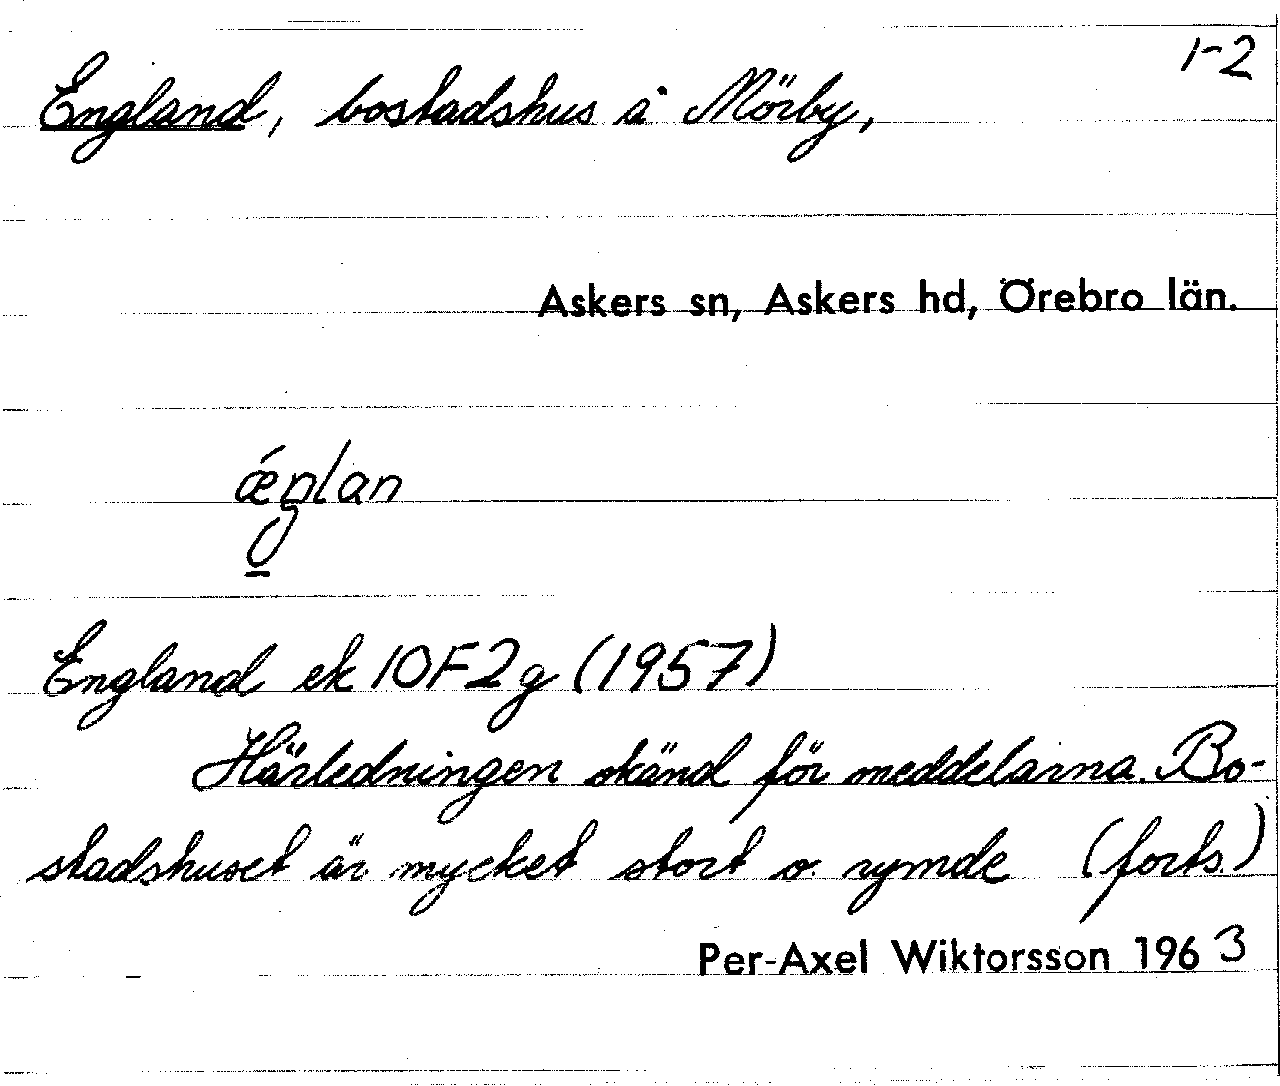 1-2
England, bostadshus å Mörby,
Askers sn, Askers hd, Örebro län.
ǽŋlan
England ek 10F2g (1957)
Härledningen okänd för meddelarna. Bo-
stadshuset är mycket stort o. rymde (forts.)
Per-Axel Wiktorsson 1963